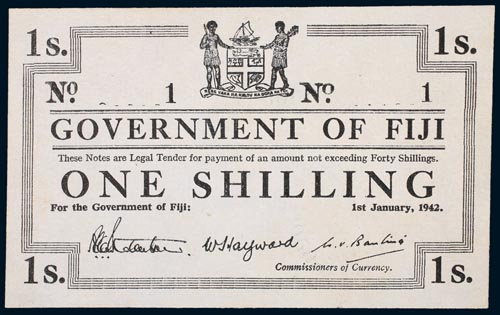 1s. 1s.
Nº 1 Nº 1
GOVERNMENT OF FIJI
These Notes are Legal Tender for payment of an amount not exceeding Forty Shillings.
ONE SHILLING
For the Government of Fiji: 1st January, 1942.
W Hayward
Commissioners of Currency.
1s. 1s.